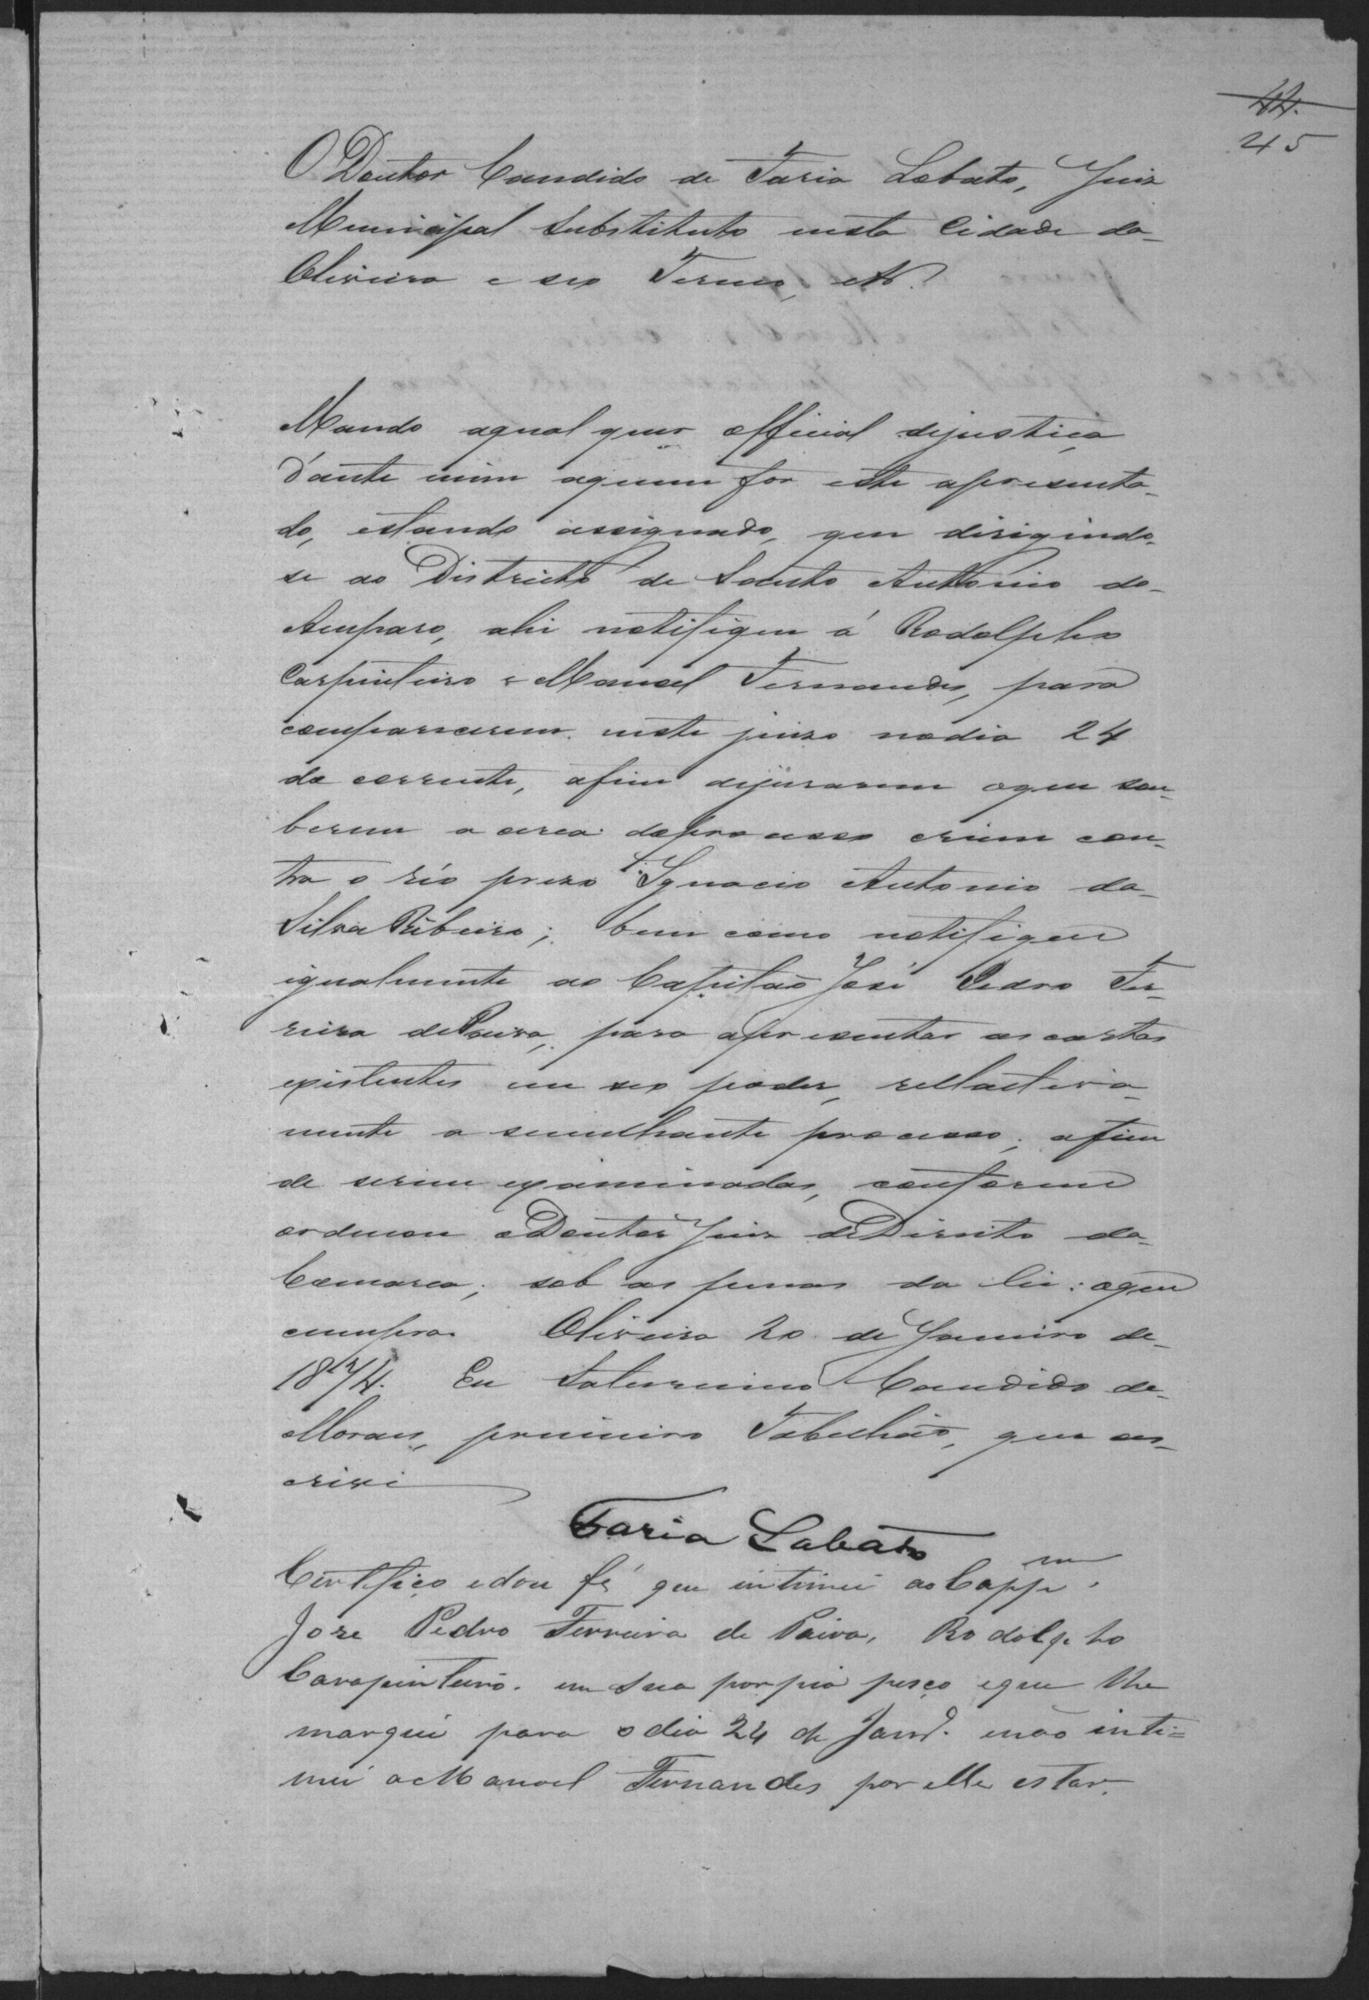 44.
45
O Doutor Candido de Faria Lobato, Juiz
Municipal Substituto nesta Cidade da
Oliveira e seo Termo, etc.
Mando aqual quer official dejustiça
d'ante mim aquem for este apresenta-
do, estando assignado, que dirigindo-
se ao Districto de Santo Antonio do
Amparo, ahi notifique á Rodolpho
Carpinteiro e Manoel Fernandes, para
comparecerem neste juizo nodia 24
do corrente, afim dejurarem oque sou-
berem a cerca doprocesso crime con-
tra o réo prezo Ignacio Antonio da
Silva Ribeiro; bem como notifique
igualmente ao Capitão José Pedro Fer-
reira dePaiva, para apresentar as cartas
existentes em seo poder, rellactiva-
mente a semelhante processo; afim
de serem examinadas, conforme
ordenou oDoutor Juiz deDireito da
Comarca; sob as penas da lei: oque
cumpra. Oliveira 20 de Janeiro de
1874. Eu Saturnino Candido de
Moraes, primeiro Tabellião, que es-
crivi
Faria Lobato
Certifico edou fé que intimei ao Cappm.
Jose Pedro Ferreira de Paiva, Rodolpho
Carapinteiro. em sua porpia pesço eque lhe
marquei para o dia 24 de Janrº. enão inti=
mei aManoel Fernandes por elle estar.